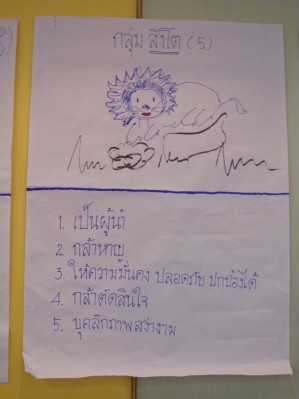 กลุ่ม สิงโต (5)
1. เป็นผู้นำ
2. กล้าหาญ
3. ให้ความมั่นคง ปลอดภัย ปกป้องได้
4. กล้าตัดสินใจ
5. บุคลิกภาพสง่างาม